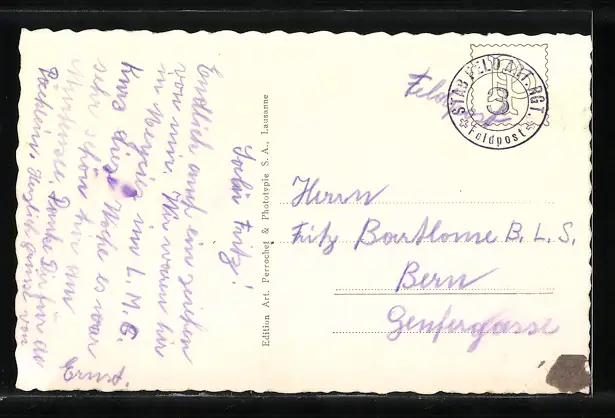 Feldpost
STAB FELD ART. RGT.
3
Feldpost
Herrn
Fritz Bartlome B. L. S.
Bern
Genfergasse
Edition Art. Perrochet & Phototypie S. A., Lausanne
Fritz!
Endlich auch ein Zeichen
von mir. Wir waren hier
in
Kurs diese Woche es war
sehr schön hier am
Danke Dir für die
von
Ernst